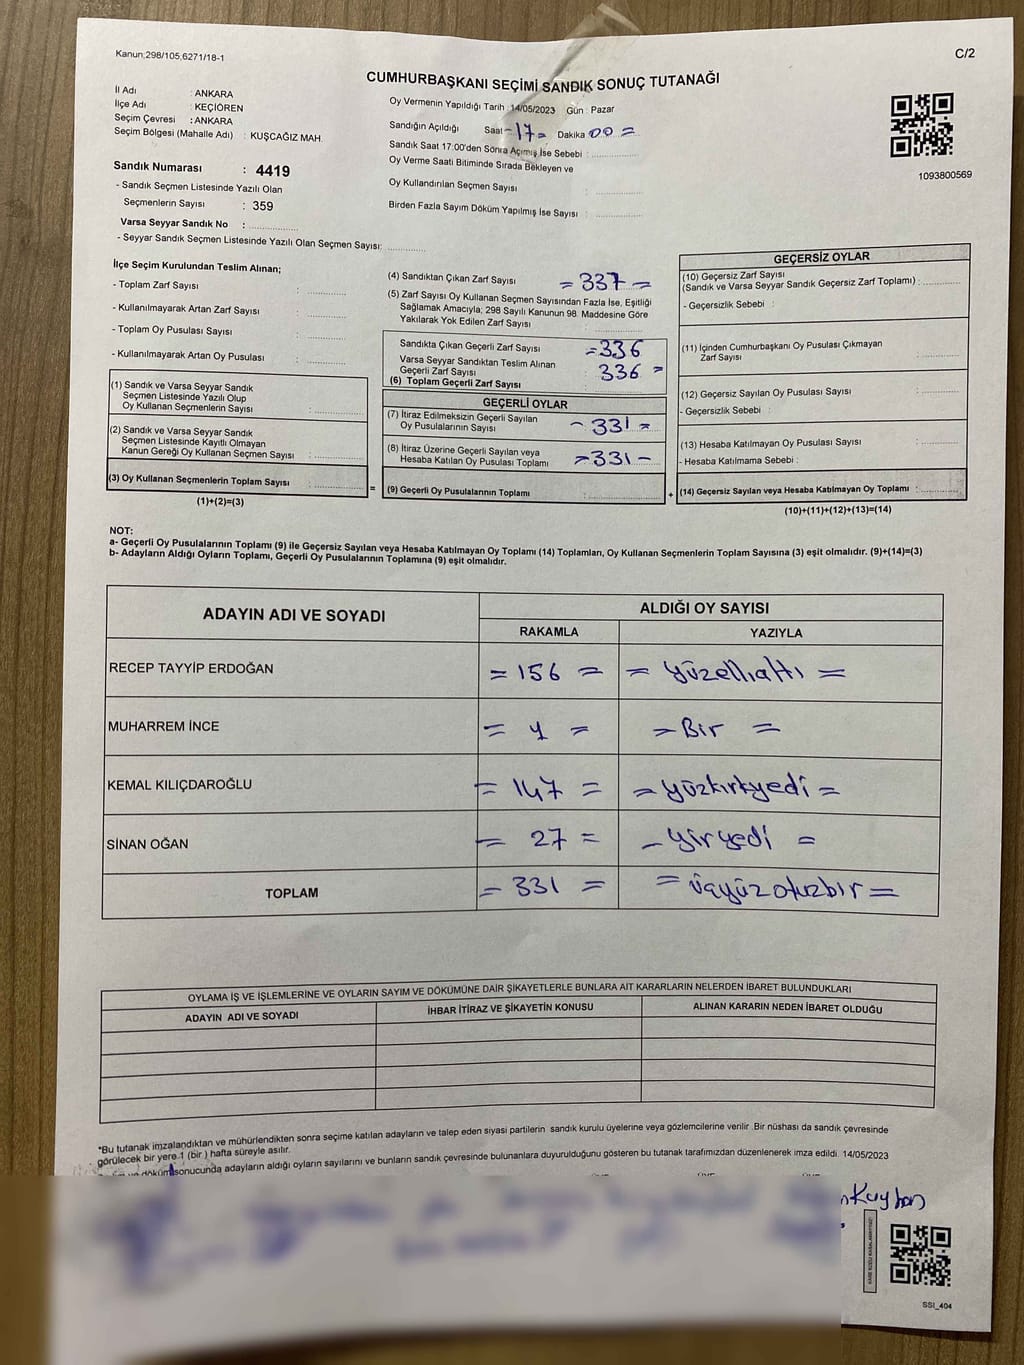 Kanun;298/105,6271/18-1
C/2
CUMHURBAŞKANI SEÇİMİ SANDIK SONUÇ TUTANAĞI
İl Adı : ANKARA
İlçe Adı : KEÇİÖREN
Seçim Çevresi : ANKARA
Seçim Bölgesi (Mahalle Adı) : KUŞCAĞIZ MAH.
Sandık Numarası : 4419
- Sandık Seçmen Listesinde Yazılı Olan
Seçmenlerin Sayısı : 359
Varsa Seyyar Sandık No :
- Seyyar Sandık Seçmen Listesinde Yazılı Olan Seçmen Sayısı:
Oy Vermenin Yapıldığı Tarih : 14/05/2023 Gün : Pazar
Sandığın Açıldığı Saat -17= Dakika 00 =
Sandık Saat 17:00'den Sonra Açımış İse Sebebi :
Oy Verme Saati Bitiminde Sırada Bekleyen ve
Oy Kullandırılan Seçmen Sayısı :
Birden Fazla Sayım Döküm Yapılmış İse Sayısı :
1093800569
İlçe Seçim Kurulundan Teslim Alınan;
- Toplam Zarf Sayısı :
- Kullanılmayarak Artan Zarf Sayısı :
- Toplam Oy Pusulası Sayısı :
- Kullanılmayarak Artan Oy Pusulası :
(1) Sandık ve Varsa Seyyar Sandık
Seçmen Listesinde Yazılı Olup
Oy Kullanan Seçmenlerin Sayısı :
(2) Sandık ve Varsa Seyyar Sandık
Seçmen Listesinde Kayıtlı Olmayan
Kanun Gereği Oy Kullanan Seçmen Sayısı :
(3) Oy Kullanan Seçmenlerin Toplam Sayısı :
(1)+(2)=(3)
(4) Sandıktan Çıkan Zarf Sayısı = 337 =
(5) Zarf Sayısı Oy Kullanan Seçmen Sayısından Fazla İse, Eşitliği
Sağlamak Amacıyla; 298 Sayılı Kanunun 98. Maddesine Göre
Yakılarak Yok Edilen Zarf Sayısı :
Sandıkta Çıkan Geçerli Zarf Sayısı =336
Varsa Seyyar Sandıktan Teslim Alınan
Geçerli Zarf Sayısı 336 =
(6) Toplam Geçerli Zarf Sayısı
GEÇERLİ OYLAR
(7) İtiraz Edilmeksizin Geçerli Sayılan
Oy Pusulalarının Sayısı - 331 =
(8) İtiraz Üzerine Geçerli Sayılan veya
Hesaba Katılan Oy Pusulası Toplamı =331-
= (9) Geçerli Oy Pusulalarının Toplamı :
GEÇERSİZ OYLAR
(10) Geçersiz Zarf Sayısı
(Sandık ve Varsa Seyyar Sandık Geçersiz Zarf Toplamı) :
- Geçersizlik Sebebi :
(11) İçinden Cumhurbaşkanı Oy Pusulası Çıkmayan
Zarf Sayısı :
(12) Geçersiz Sayılan Oy Pusulası Sayısı :
- Geçersizlik Sebebi :
(13) Hesaba Katılmayan Oy Pusulası Sayısı :
- Hesaba Katılmama Sebebi :
+ (14) Geçersiz Sayılan veya Hesaba Katılmayan Oy Toplamı :
(10)+(11)+(12)+(13)=(14)
NOT:
a- Geçerli Oy Pusulalarının Toplamı (9) ile Geçersiz Sayılan veya Hesaba Katılmayan Oy Toplamı (14) Toplamları, Oy Kullanan Seçmenlerin Toplam Sayısına (3) eşit olmalıdır. (9)+(14)=(3)
b- Adayların Aldığı Oyların Toplamı, Geçerli Oy Pusulalarının Toplamına (9) eşit olmalıdır.
ADAYIN ADI VE SOYADI
ALDIĞI OY SAYISI
RAKAMLA YAZIYLA
RECEP TAYYİP ERDOĞAN = 156 = = yüzellialtı =
MUHARREM İNCE = 1 = = Bir =
KEMAL KILIÇDAROĞLU = 147 = = yüzkırkyedi =
SİNAN OĞAN = 27 = - yiryedi =
TOPLAM = 331 = = üçyüzotuzbir =
OYLAMA İŞ VE İŞLEMLERİNE VE OYLARIN SAYIM VE DÖKÜMÜNE DAİR ŞİKAYETLERLE BUNLARA AİT KARARLARIN NELERDEN İBARET BULUNDUKLARI
ADAYIN ADI VE SOYADI İHBAR İTİRAZ VE ŞİKAYETİN KONUSU ALINAN KARARIN NEDEN İBARET OLDUĞU
*Bu tutanak imzalandıktan ve mühürlendikten sonra seçime katılan adayların ve talep eden siyasi partilerin sandık kurulu üyelerine veya gözlemcilerine verilir .Bir nüshası da sandık çevresinde
görülecek bir yere 1 (bir ) hafta süreyle asılır.
sonucunda adayların aldığı oyların sayılarını ve bunların sandık çevresinde bulunanlara duyurulduğunu gösteren bu tutanak tarafımızdan düzenlenerek imza edildi. 14/05/2023
SSI_404